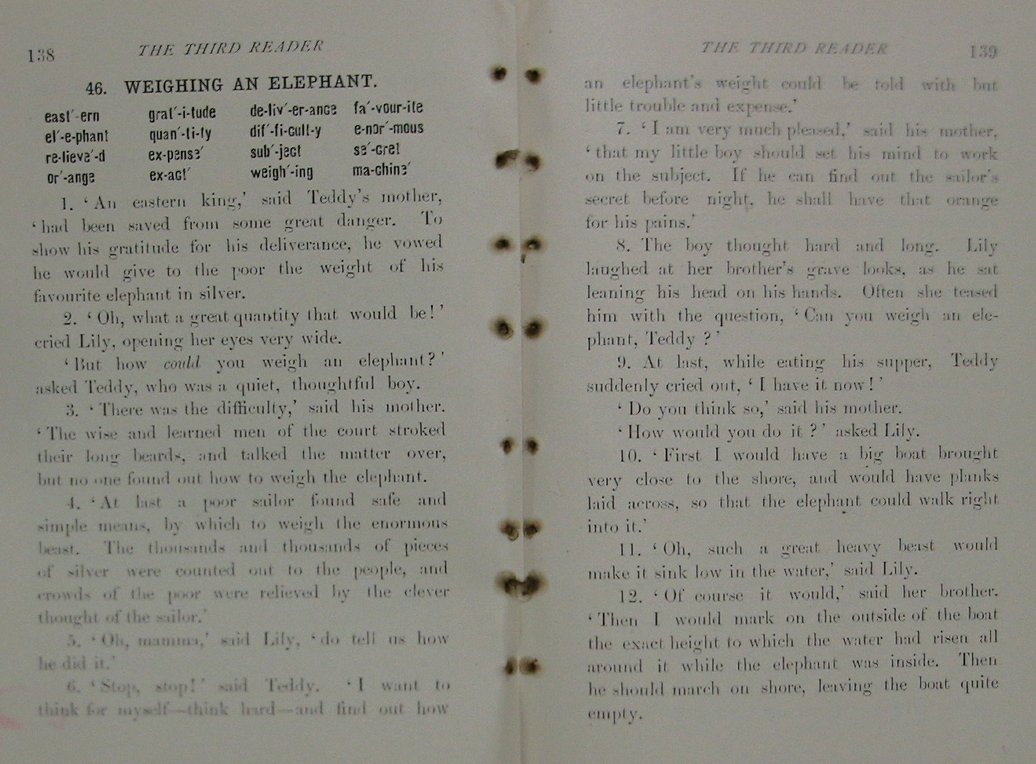 138 THE THIRD READER
46. WEIGHING AN ELEPHANT.
east´-ern grat´-i-tude de-liv´-er-ance fa´-vour-ite
el´-e-phant quan´-ti-ty dif´-fi-cult-y e-nor´-mous
re-lieve´-d ex-pense´ sub´-ject se´-cret
or´-ange ex-act´ weigh´-ing ma-chine´
1. ‘An eastern king,’ said Teddy's mother,
‘had been saved from some great danger. To
show his gratitude for his deliverance, he vowed
he would give to the poor the weight of his
favourite elephant in silver.
2. ‘Oh, what a great quantity that would be!’
cried Lily, opening her eyes very wide.
‘But how could you weigh an elephant?’
asked Teddy, who was a quiet, thoughtful boy.
3. ‘There was the difficulty,’ said his mother.
‘The wise and learned men of the court stroked
their long beards, and talked the matter over,
but no one found out how to weigh the elephant.
4. ‘At last a poor sailor found safe and
simple means, by which to weigh the enormous
beast. The thousands and thousands of pieces
of silver were counted out to the people, and
crowds of the poor were relieved by the clever
thought of the sailor.’
5. ‘Oh, mamma,’ said Lily, ‘do tell us how
he did it.’
6. ‘Stop, stop!’ said Teddy. ‘I want to
think for myself—think hard—and find out how
THE THIRD READER 139
an elephant's weight could be told with but
little trouble and expense.’
7. ‘I am very much pleased,’ said his mother,
‘that my little boy should set his mind to work
on the subject. If he can find out the sailor's
secret before night, he shall have that orange
for his pains.’
8. The boy thought hard and long. Lily
laughed at her brother's grave looks, as he sat
leaning his head on his hands. Often she teased
him with the question, ‘Can you weigh an ele-
phant, Teddy?’
9. At last, while eating his supper, Teddy
suddenly cried out, ‘I have it now!’
‘Do you think so,’ said his mother.
‘How would you do it?’ asked Lily.
10. ‘First I would have a big boat brought
very close to the shore, and would have planks
laid across, so that the elephant could walk right
into it.’
11. ‘Oh, such a great heavy beast would
make it sink low in the water,’ said Lily.
12. ‘Of course it would,’ said her brother.
‘Then I would mark on the outside of the boat
the exact height to which the water had risen all
around it while the elephant was inside. Then
he should march on shore, leaving the boat quite
empty.